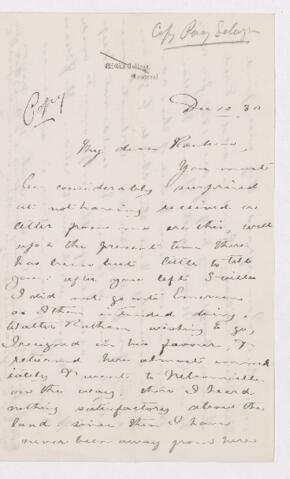 Copy Percy Selwyn
McGill College
Montreal
Copy
Dec 10 30
My dear Rankine,
You must
be considerably surprised
at not having received a
letter from me ere this, well
up to the present time there
has been but little to tell
you: after you left
I did not go into Emerson
as I then intended doing,
Walter Nathan wishing to go,
I resigned in his favour, &
returned here almost immed
iately & went to Nelsonville
on the way, where I heard
nothing satisfactory about the
land since then I have
never been away from here